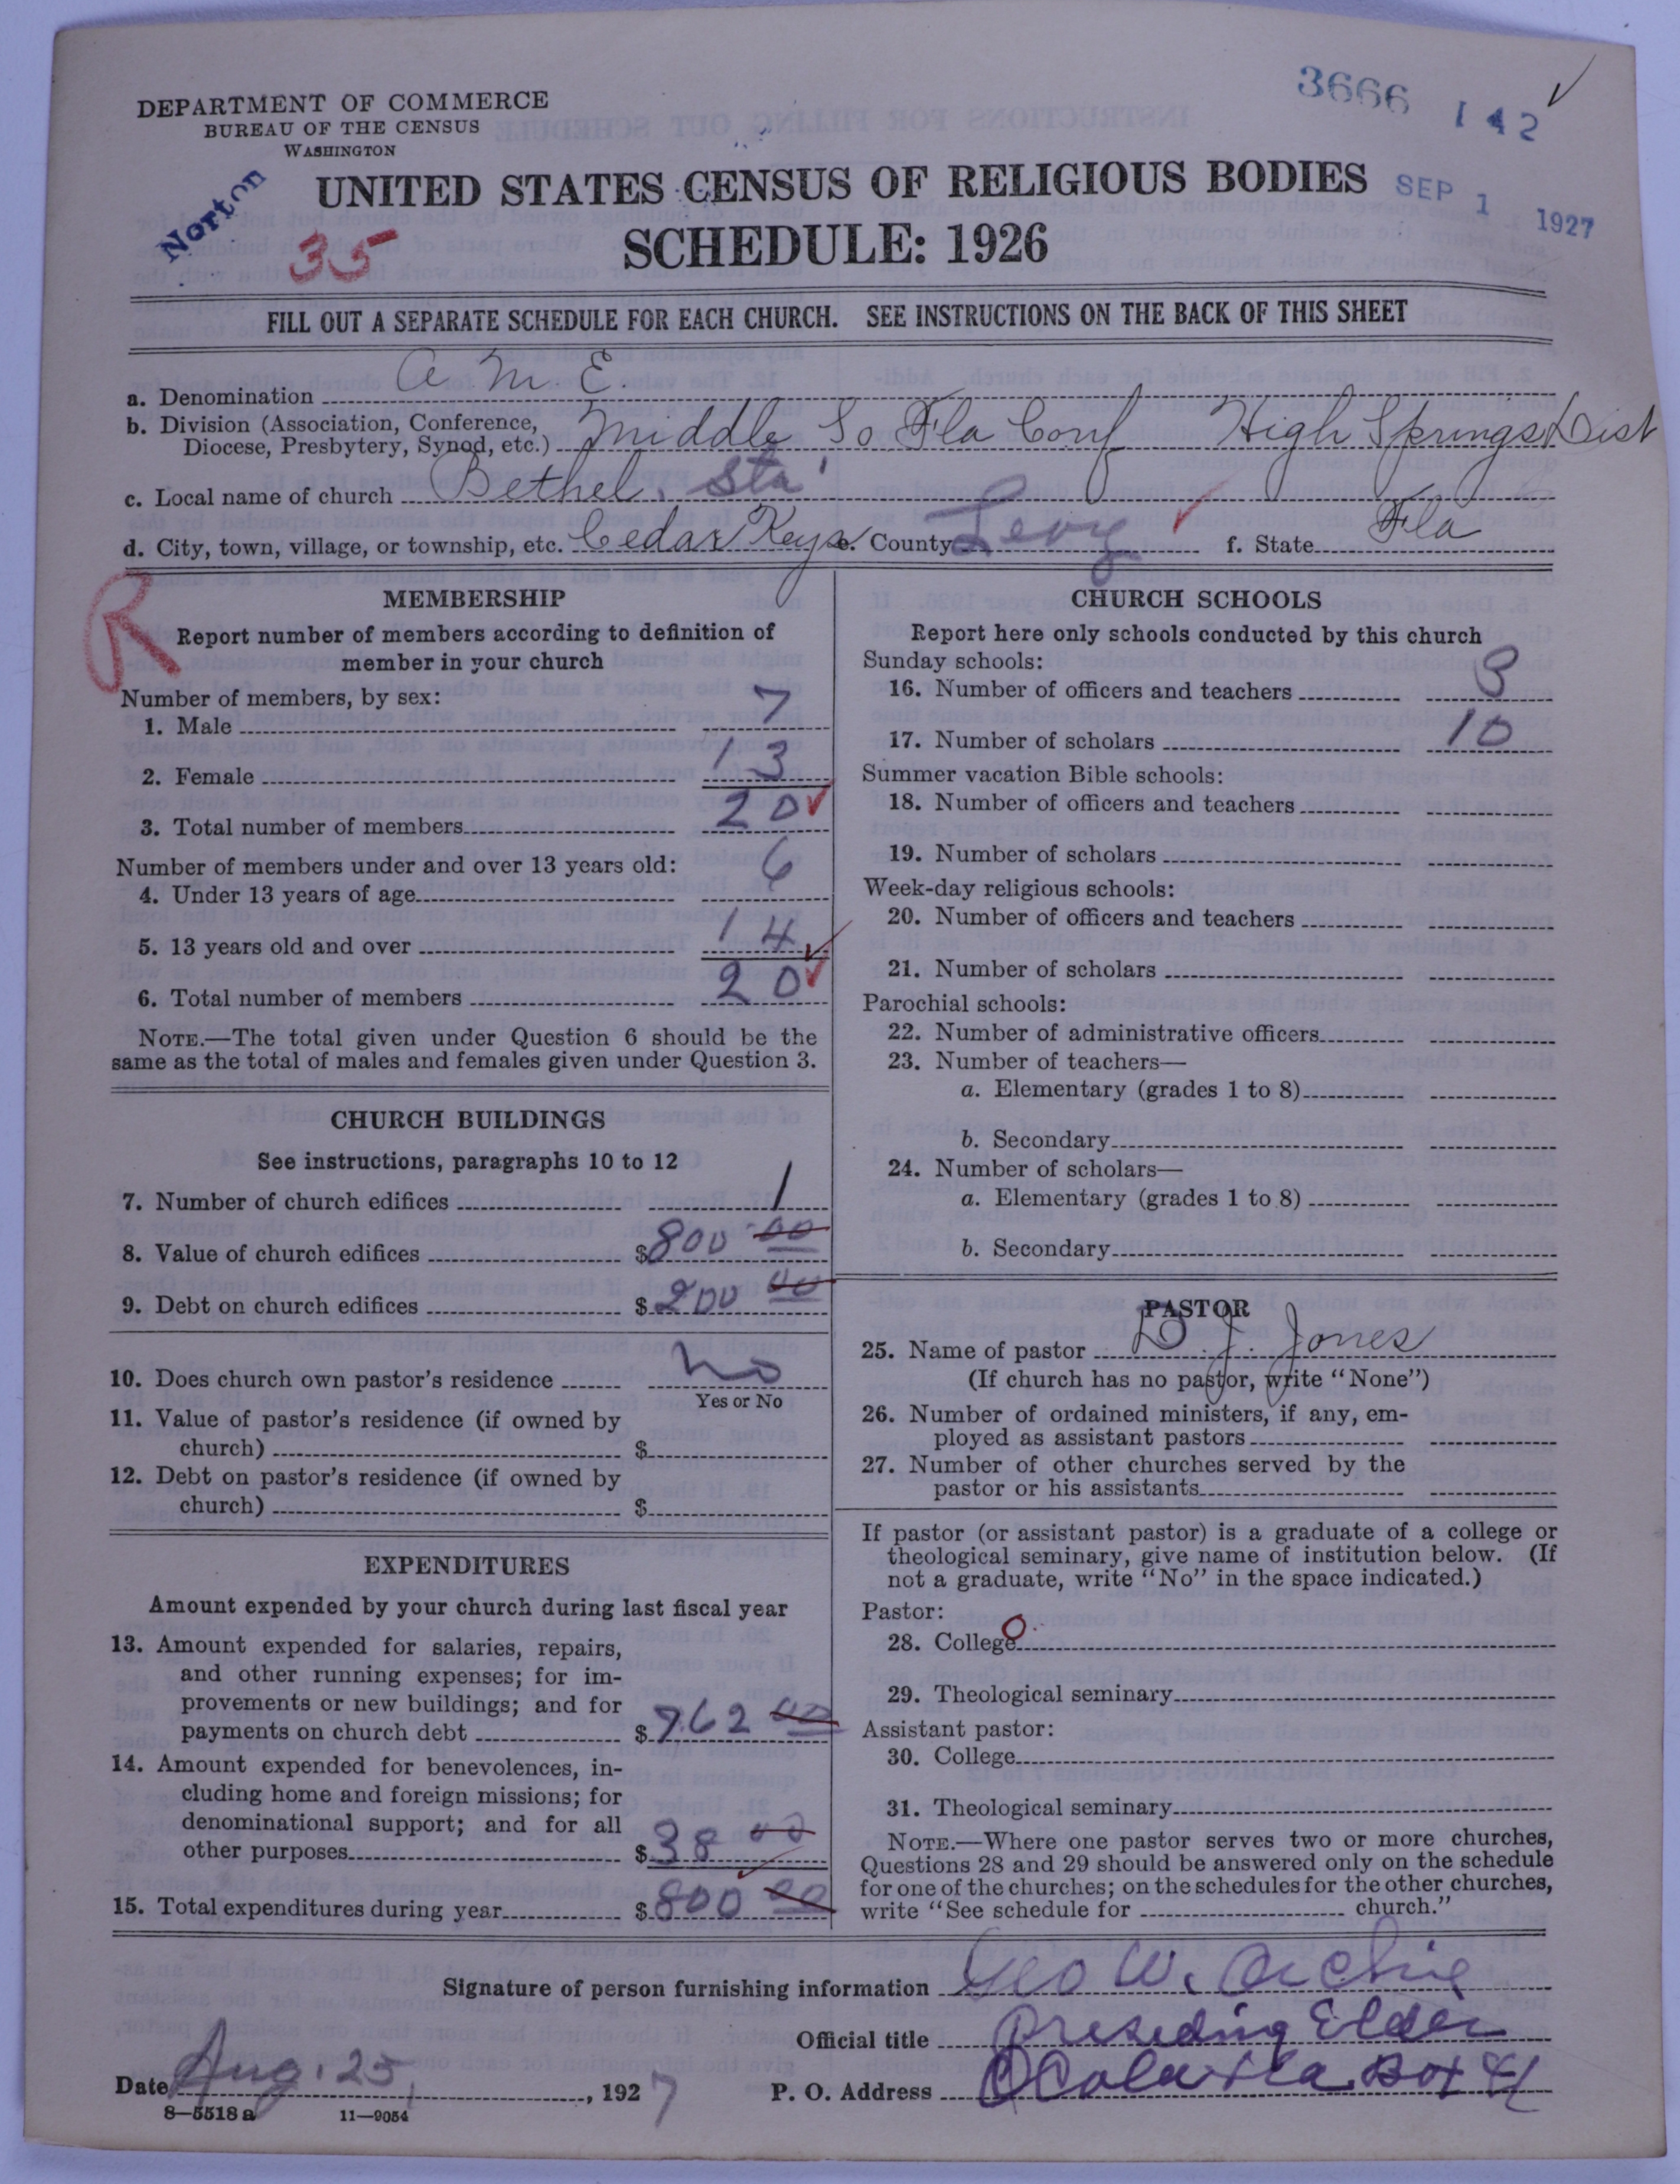 3666 142
DEPARTMENT OF COMMERCE
BUREAU OF THE CENSUS
WASHINGTON
Norton
35
UNITED STATES CENSUS OF RELIGIOUS BODIES
SEP 1 1927
SCHEDULE: 1926
FILL OUT A SEPARATE SCHEDULE FOR EACH CHURCH. SEE INSTRUCTIONS ON THE BACK OF THIS SHEET
a. Denomination A. M. E.
b. Division (Association, Conference,
Diocese, Presbytery, Synod, etc.) Middle So Fla Conf High Springs Dist
c. Local name of church Bethel, Sta
d. City, town, village, or township, etc. Cedar Keys e. County Levy f. State Fla
R
MEMBERSHIP
Report number of members according to definition of
member in your church
Number of members, by sex:
1. Male 7
2. Female 13
3. Total number of members 20
Number of members under and over 13 years old:
4. Under 13 years of age 6
5. 13 years old and over 14
6. Total number of members 20
NOTE.—The total given under Question 6 should be the
same as the total of males and females given under Question 3.
CHURCH BUILDINGS
See instructions, paragraphs 10 to 12
7. Number of church edifices 1
8. Value of church edifices $800 00
9. Debt on church edifices $200 00
10. Does church own pastor's residence No
Yes or No
11. Value of pastor's residence (if owned by
church) $
12. Debt on pastor's residence (if owned by
church) $
EXPENDITURES
Amount expended by your church during last fiscal year
13. Amount expended for salaries, repairs,
and other running expenses; for im-
provements or new buildings; and for
payments on church debt $762 00
14. Amount expended for benevolences, in-
cluding home and foreign missions; for
denominational support; and for all
other purposes $38 00
15. Total expenditures during year $800 00
CHURCH SCHOOLS
Report here only schools conducted by this church
Sunday schools:
16. Number of officers and teachers 3
17. Number of scholars 10
Summer vacation Bible schools:
18. Number of officers and teachers
19. Number of scholars
Week-day religious schools:
20. Number of officers and teachers
21. Number of scholars
Parochial schools:
22. Number of administrative officers
23. Number of teachers—
a. Elementary (grades 1 to 8)
b. Secondary
24. Number of scholars—
a. Elementary (grades 1 to 8)
b. Secondary
PASTOR
25. Name of pastor D. J. Jones
(If church has no pastor, write "None")
26. Number of ordained ministers, if any, em-
ployed as assistant pastors
27. Number of other churches served by the
pastor or his assistants
If pastor (or assistant pastor) is a graduate of a college or
theological seminary, give name of institution below. (If
not a graduate, write "No" in the space indicated.)
Pastor:
28. College O
29. Theological seminary
Assistant pastor:
30. College
31. Theological seminary
NOTE.—Where one pastor serves two or more churches,
Questions 28 and 29 should be answered only on the schedule
for one of the churches; on the schedules for the other churches,
write "See schedule for church."
Signature of person furnishing information Geo W. Archie
Official title Preseding Elder
Date Aug. 25, 1927 P. O. Address Ocala Fla Box
8—5518 a 11—9054